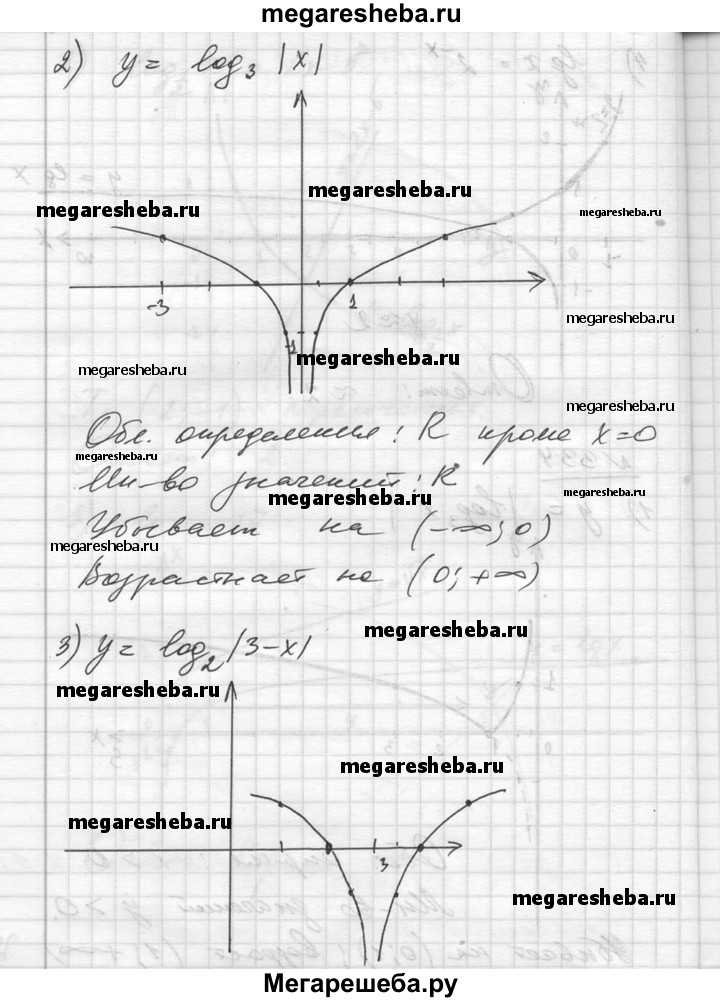 megaresheba.ru
2) y = log₃ |x|
megaresheba.ru
megaresheba.ru
megaresheba.ru
-3
1
megaresheba.ru
-1
megaresheba.ru
megaresheba.ru
megaresheba.ru
Обл. определения: R кроме x=0
megaresheba.ru
Мн-во значений: R
megaresheba.ru
megaresheba.ru
Убывает на (-∞; 0)
megaresheba.ru
Возрастнает на (0; +∞)
megaresheba.ru
3) y = log₂ |3-x|
megaresheba.ru
megaresheba.ru
megaresheba.ru
3
megaresheba.ru
Мегарешеба.ру